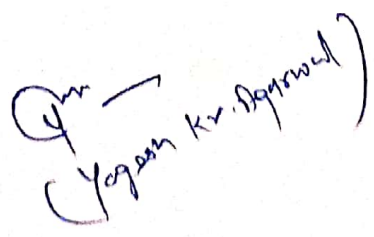 (Yogesh Kr. Agarwal)